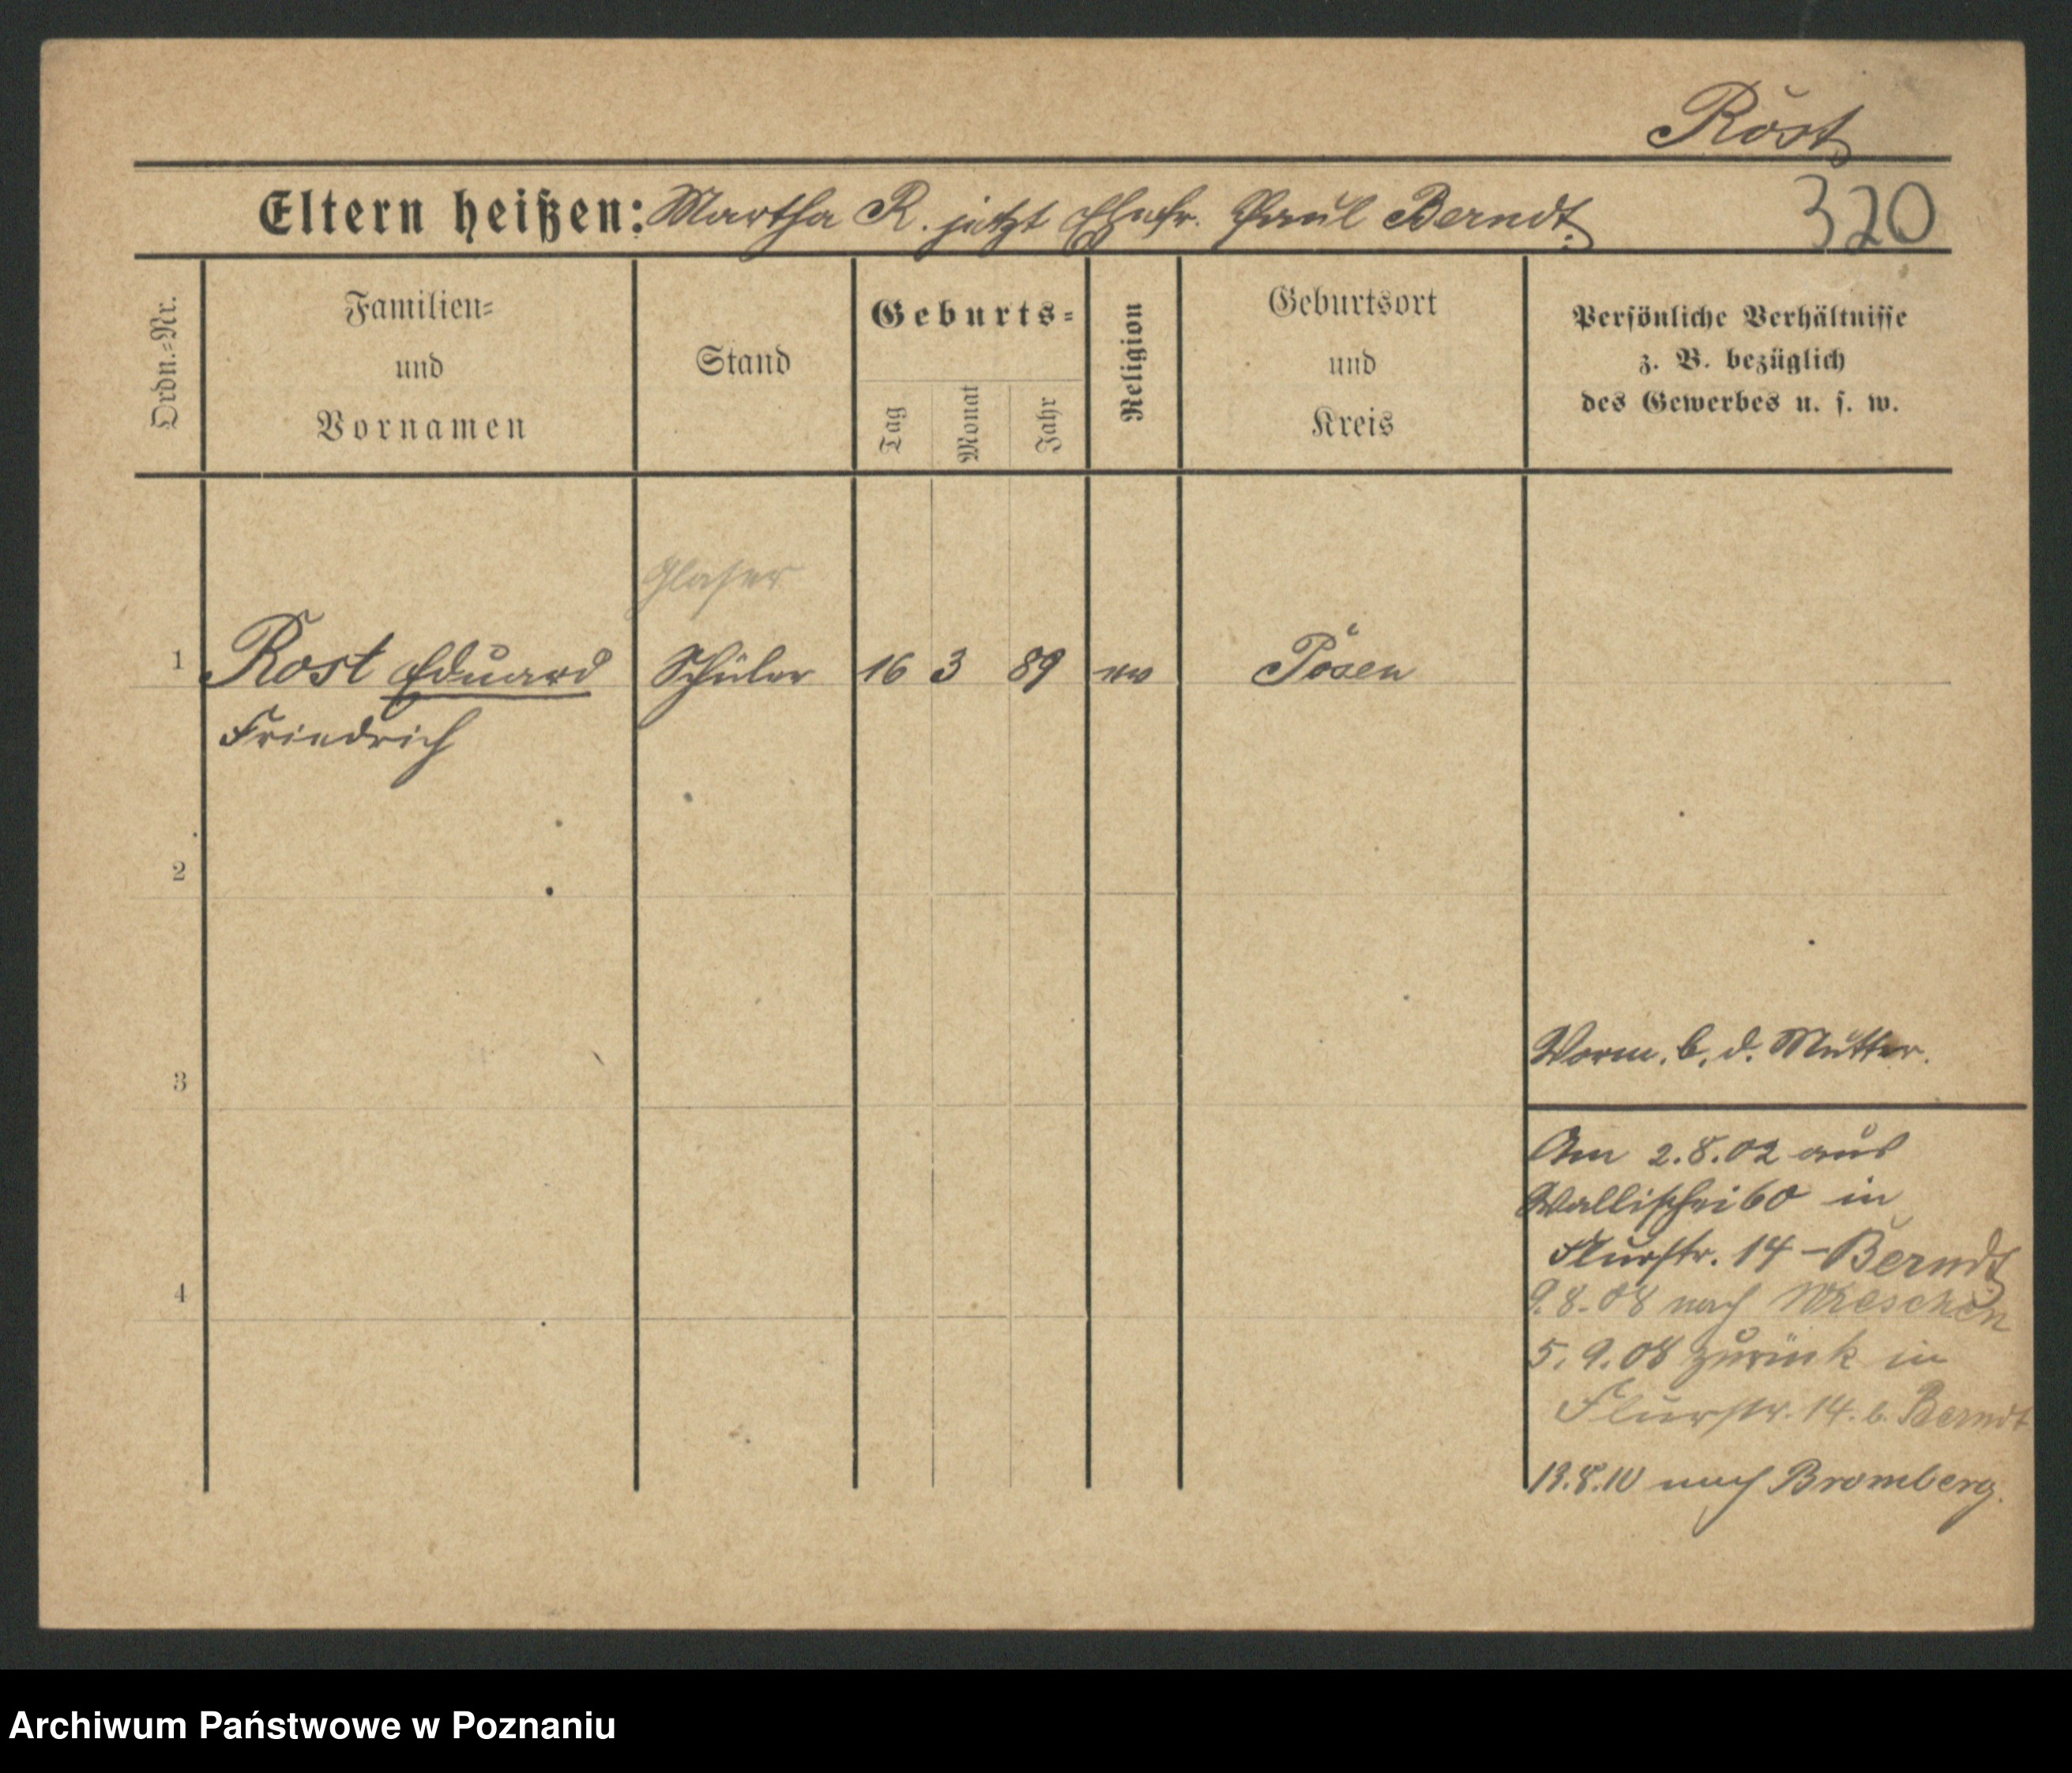 Rost
Eltern heißen: Martha R. jetzt Ehefr. Paul Berndt.
320
Ordn.=Nr.
Familien=
und
Vornamen
Stand
Geburts=
Tag
Monat
Jahr
Religion
Geburtsort
und
Kreis
Persönliche Verhältnisse
z. B. bezüglich
des Gewerbes u. s. w.
Glaser
1 Rost Eduard Schüler 16 3 89 ev Posen
Friedrich
2
3
4
Vorm. b. d. Mutter.
Am 2.8.02 aus
Wallischei 60 in
Flurstr. 14 - Berndt
9.8.08 nach Wreschen
5.9.08 zurück in
Flurstr. 14. b. Berndt
13.8.10 nach Bromberg.
Archiwum Państwowe w Poznaniu